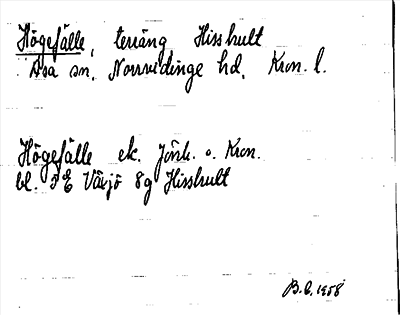 Högefälle, terräng, Hisshult
Asa sn, Norrvidinge hd, Kron. l.
Högefälle ek. Jönk. o. Kron.
bl. 5E Växjö 8g Hisshult
B.E. 1958